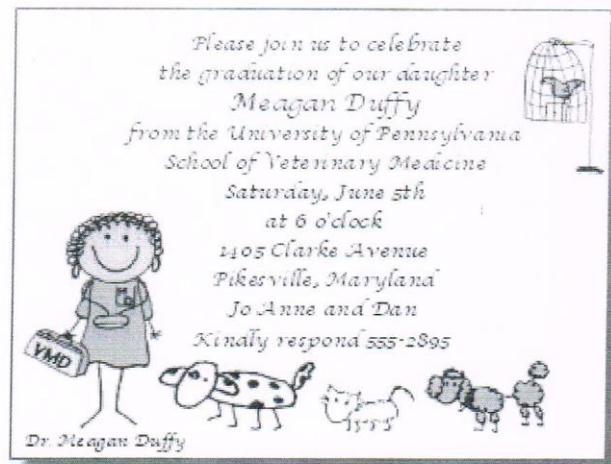 Please join us to celebrate
the graduation of our daughter
Meagan Duffy
from the University of Pennsylvania
School of Veterinary Medicine
Saturday, June 5th
at 6 o'clock
1405 Clarke Avenue
Pikesville, Maryland
Jo Anne and Dan
Kindly respond 555-2895
VMD
Dr. Meagan Duffy